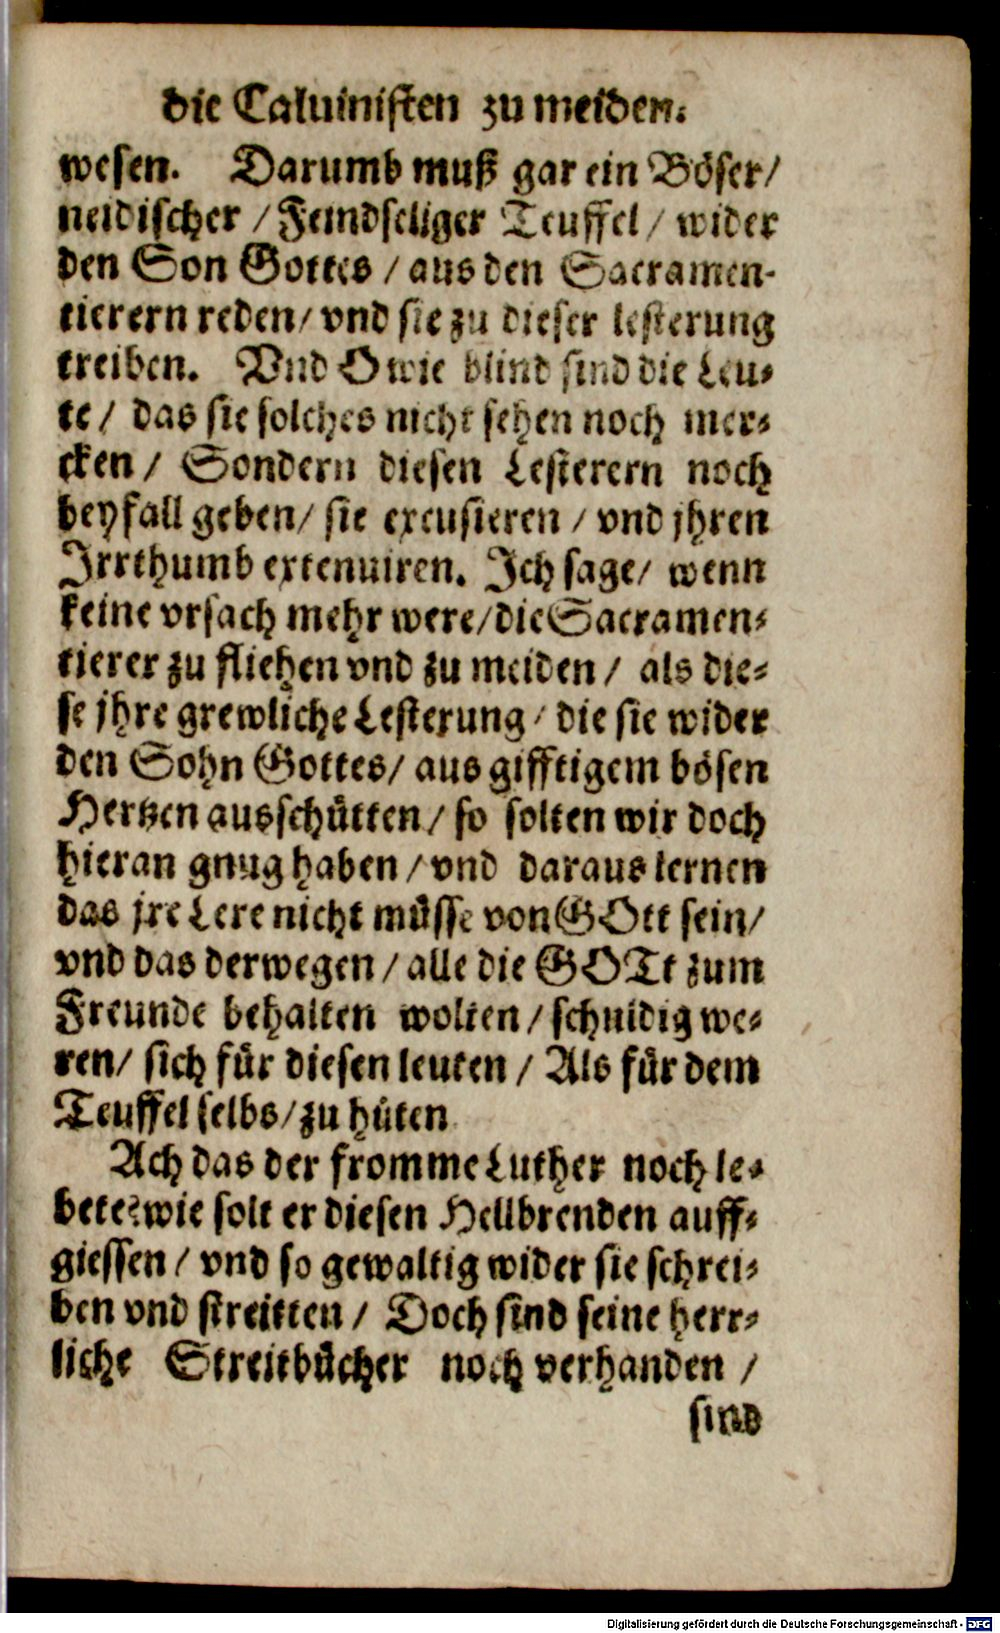 die Caluinisten zu meiden.
wesen. Darumb muß gar ein Böser/
neidischer / Feindseliger Teuffel / wider
den Son Gottes / aus den Sacramen-
tierern reden/ vnd sie zu dieser lesterung
treiben. Vnd O wie blind sind die Leu-
te / das sie solches nicht sehen noch mer-
cken / Sondern diesen Lesterern noch
beyfall geben/ sie excusieren / vnd jhren
Irrthumb extenuiren. Ich sage/ wenn
keine vrsach mehr were/die Sacramen-
tierer zu fliehen vnd zu meiden / als die-
se jhre grewliche Lesterung / die sie wider
den Sohn Gottes/ aus gifftigem bösen
Hertzen ausschütten / so solten wir doch
hieran gnug haben / vnd daraus lernen
das jre Lere nicht müsse von GOtt sein/
vnd das derwegen / alle die GOTt zum
Freunde behalten wolten / schuldig we-
ren/ sich für diesen leuten / Als für dem
Teuffel selbs/zu hüten
Ach das der fromme Luther noch le-
bete? wie solt er diesen Hellbrenden auff-
giessen / vnd so gewaltig wider sie schrei-
ben vnd streitten / Doch sind seine herr-
liche Streitbücher noch verhanden /
sind
Digitalisierung gefördert durch die Deutsche Forschungsgemeinschaft - DFG